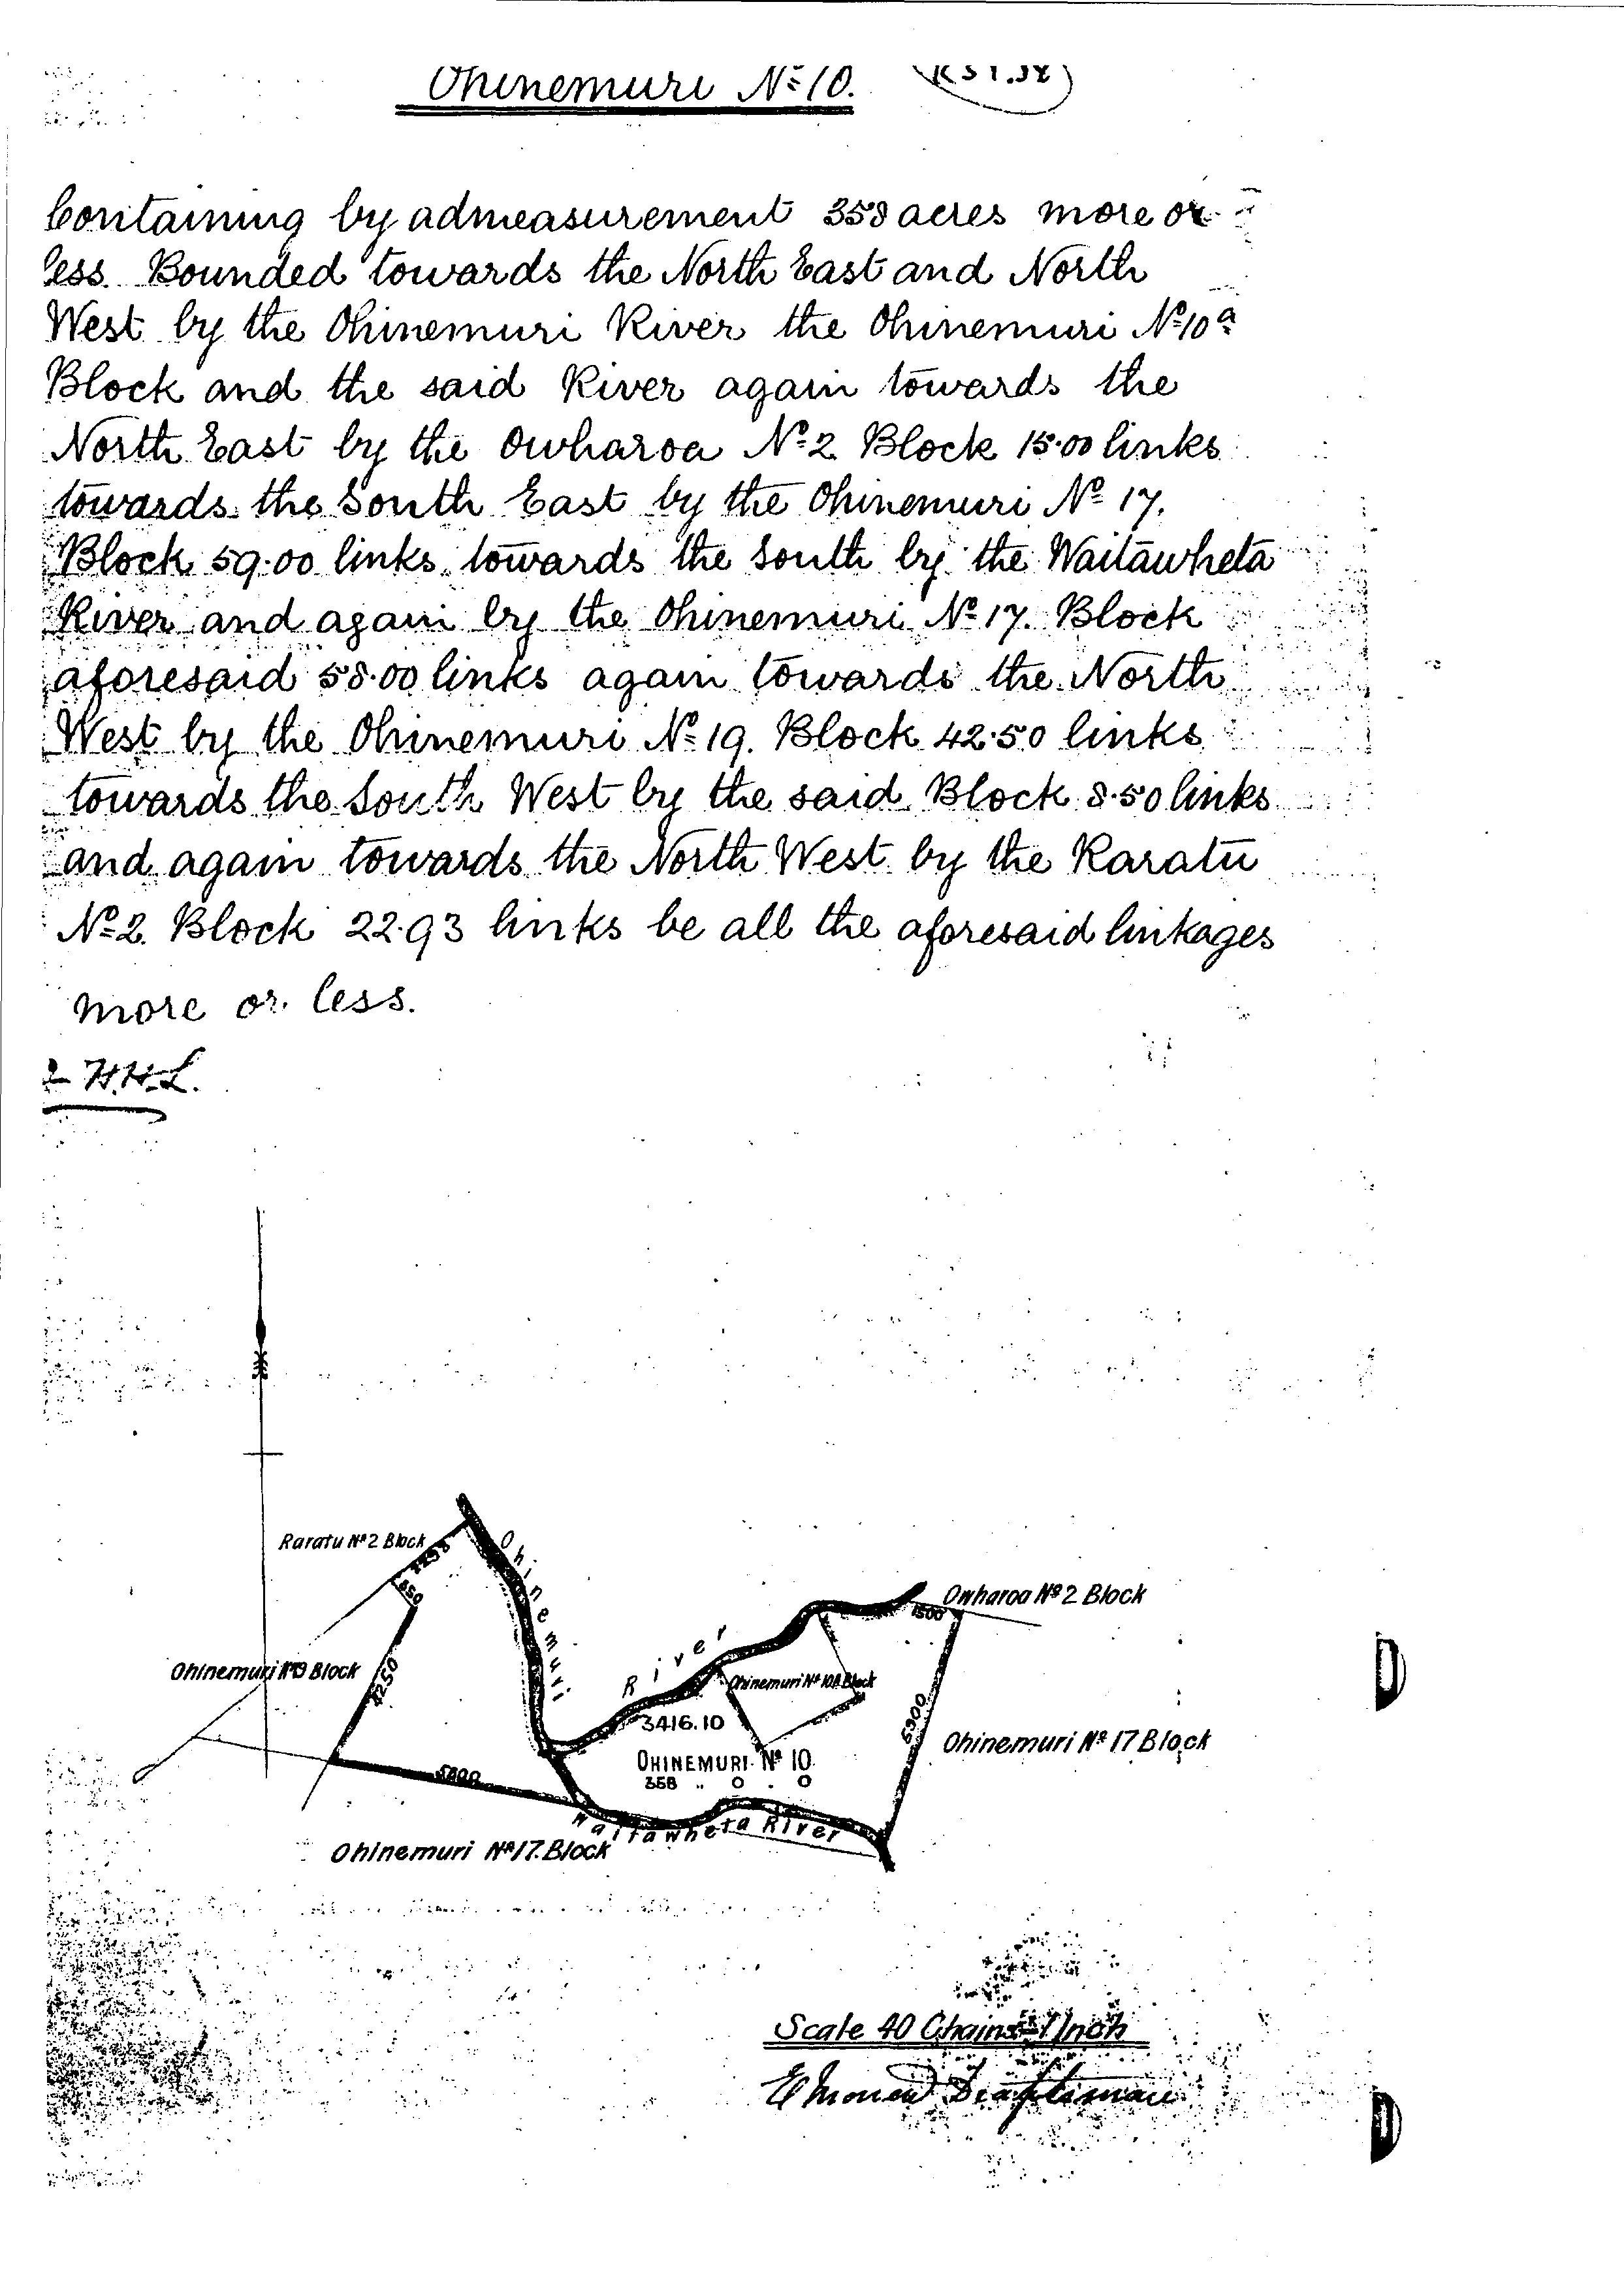 Ohinemuri No 10.
Containing by admeasurement 358 acres more or
less. Bounded towards the North East and North
West by the Ohinemuri River the Ohinemuri No 10a
Block and the said River again towards the
North East by the Owharoa No 2 Block 15.00 links
towards the South East by the Ohinemuri No 17.
Block 59.00 links towards the South by the Waitawheta
River and again by the Ohinemuri No 17. Block
aforesaid 58.00 links again towards the North
West by the Ohinemuri No 19. Block 42.50 links
towards the South West by the said Block 8.50 links
and again towards the North West by the Raratu
No 2. Block 22.93 links be all the aforesaid linkages
more or less.
H.H.L.
Raratu No 2 Block
2293
850
Ohinemuri
River
Owharoa No 2 Block
1500
Ohinemuri No 19 Block
4250
Ohinemuri No 10A Block
3416.10
5900
Ohinemuri No 17 Block
OHINEMURI No 10.
358 .. 0 . 0
5800
Waitawheta River
Ohinemuri No 17. Block
Scale 40 Chains = 1 Inch
Draftsman